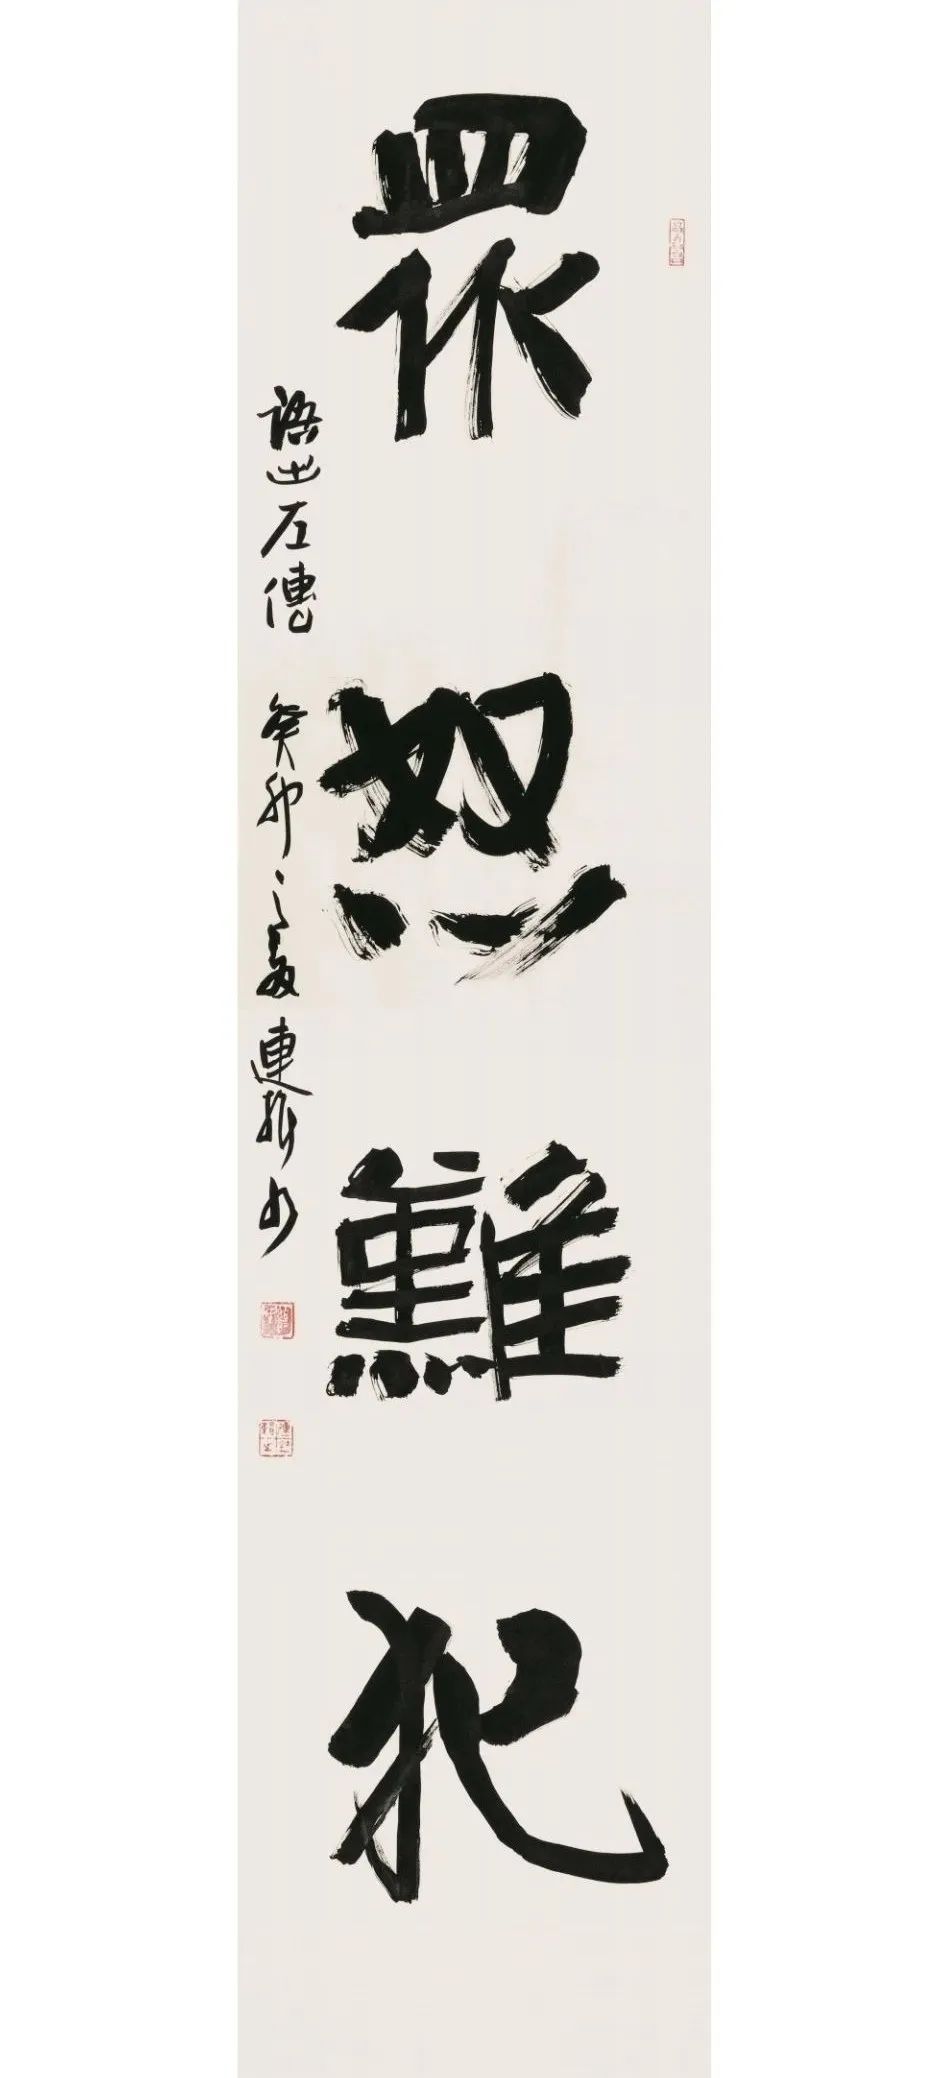 眾怒難犯
語出左傳 癸卯之夏 連振书